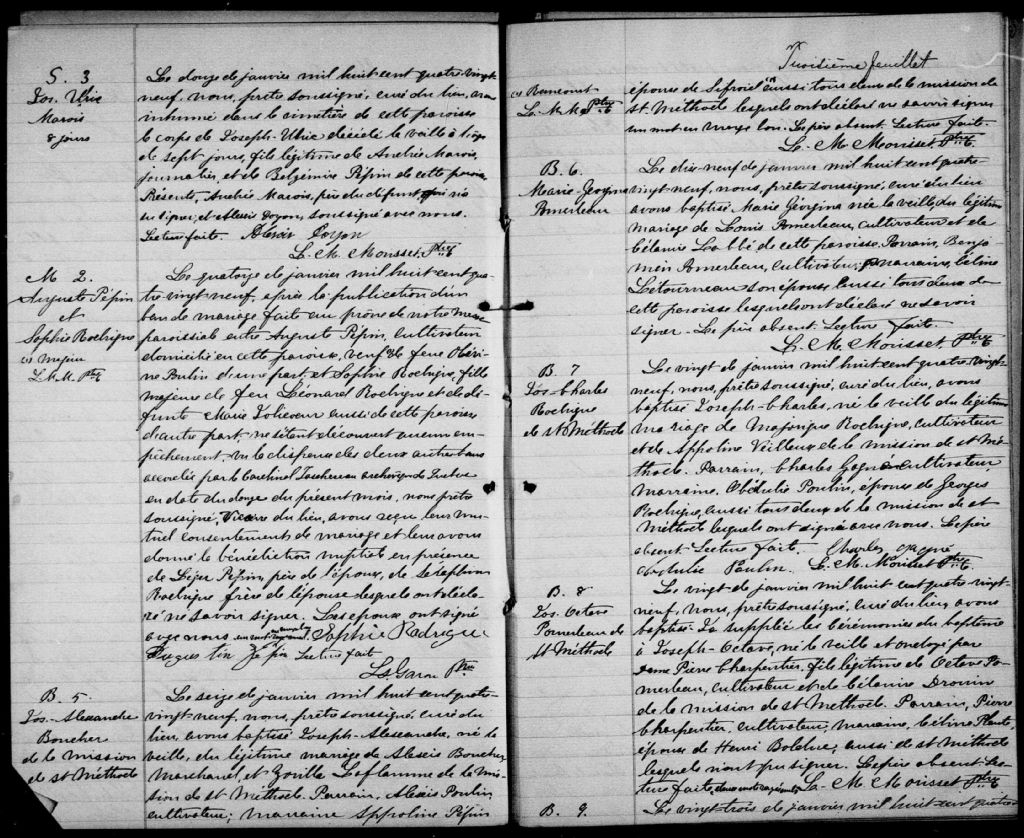 S. 3
Jos. Ulric
Marois
8 jours
Le douze de janvier mil huit cent quatre-vingt-
neuf, nous, prêtre soussigné, curé du lieu, avons
inhumé dans le cimetière de cette paroisse
le corps de Joseph-Ulric décédé la veille à l'âge
de sept jours, fils légitime de Andrée Marois,
journalier, et de Belzémire Pépin de cette paroisse
Présents, Andrée Marois, père du défunt, qui n'a
su signer, et Alexis Doyon, soussigné avec nous.
Lecture faite. Alexis Doyon
L. M. Mousset, Ptre
M 2.
Auguste Pépin
et
Sophie Rodrigue
Le quatorze de janvier mil huit cent qua-
tre-vingt-neuf, après la publication d'un
ban de mariage fait au prône de notre messe
paroissiale entre Auguste Pépin, cultivateur
domicilié en cette paroisse, veuf de feue
Poulin d'une part, et Sophie Rodrigue, fille
majeure de feu Léonard Rodrigue et de dé-
funte Marie Jolicoeur aussi de cette paroisse
d'autre part, ne s'étant découvert aucun em-
pêchement, vu la dispense des deux autres bans
accordée par le Cardinal Taschereau archevêque de Québec
en date du douze du présent mois, nous prêtre
soussigné, Vicaire du lieu, avons reçu leur mu-
tuel consentement de mariage et leur avons
donné la bénédiction nuptiale en présence
de Pépin, père de l'époux, de Séraphin
Rodrigue frère de l'épouse lesquels ont décla-
ré ne savoir signer. Les époux ont signé
avec nous Sophie Rodrigue
Lecture faite
Ptre
B. 5
Jos.-Alexandre
Boucher
de la mission
de st Méthode
Le seize de janvier mil huit cent quatre-
vingt-neuf, nous, prêtre soussigné, curé du
lieu, avons baptisé Joseph-Alexandre, né la
veille, du légitime mariage de Alexis Boucher,
Marchand, et Zoïlle Laflamme de la mis-
sion de st-Méthode. Parrain, Alexis Poulin
cultivateur; marraine Appoline Pépin
Troisième feuillet
L. M. M. Ptre
épouse de aussi tous deux de la mission de
st Méthode lesquels ont déclaré ne savoir signer
un mot en marge bon. Le père absent. Lecture faite.
L. M. Mousset Ptre
B. 6.
Marie-Georgina
Pomerleau
Le dix-neuf de janvier mil huit cent quatre-
vingt-neuf, nous, prêtre soussigné, curé du lieu
avons baptisé Marie Géorgina née la veille, du légitime
mariage de Louis Pomerleau, cultivateur et de
Célanire de cette paroisse. Parrain, Benja-
min Pomerleau, cultivateur; marraine, Céline
Létourneau son épouse aussi tous deux de
cette paroisse lesquels ont déclaré ne savoir
signer. Le père absent. Lecture faite.
L. M. Mousset, Ptre
B. 7
Jos-Charles
Rodrigue
de st Méthode
Le vingt de janvier mil huit cent quatre-vingt-
neuf, nous, prêtre soussigné, curé du lieu, avons
baptisé Joseph-Charles, né la veille du légitime
mariage de Majorique Rodrigue, cultivateur
et de Appoline Veilleux de la mission de st Mé-
thode. Parrain, Charles Gagné cultivateur,
Marraine, Obédulie Poulin, épouse de Georges
Rodrigue, aussi tous deux de la mission de st
Méthode lesquels ont signé avec nous. Le père
absent. Lecture faite. Charles Gagné
Poulin. L. M. Mousset Ptre
B. 8
Jos. Octave
Pomerleau de
st Méthode
Le vingt de janvier mil huit cent quatre-vingt-
neuf, nous, prêtre soussigné, curé du lieu, avons
suppléé les cérémonies du baptême
à Joseph-Octave, né la veille et ondoyé par
Dame Pierre Charpentier, fils légitime de Octave Po-
merleau, cultivateur et de Célanire Drouin
de la mission de st Méthode. Parrain, Pierre
Charpentier, cultivateur, marraine, Céline Plante,
épouse de Henri Bolduc, aussi de st Méthode
lesquels n'ont pu signer. Le père absent. Lec-
ture faite, L. M. Mousset Ptre
B. 9.
Le vingt-trois de janvier mil huit cent quatre